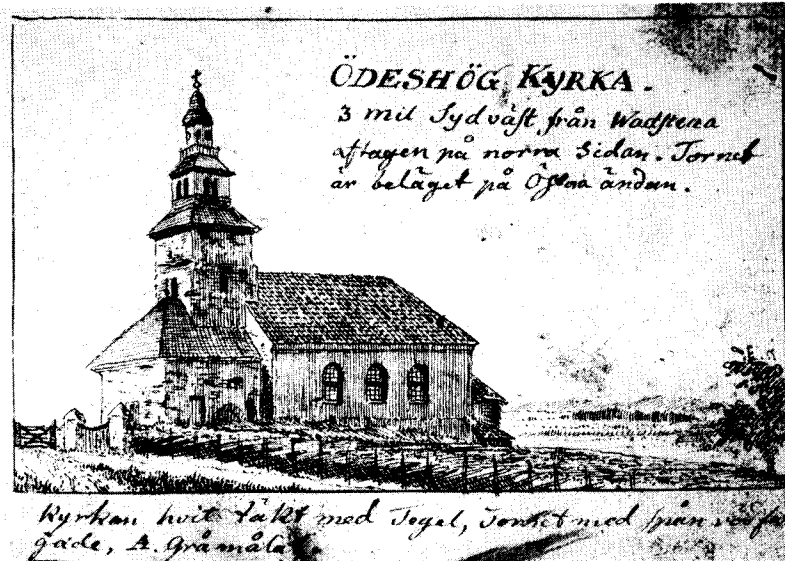 ÖDESHÖG KYRKA.
3 mil Sydväst från Wadstena
aftagen på norra Sidan. Tornet
är beläget på Östra ändan.
Kyrkan hvit täkt med Tegel, Tornet med spån
gade, A. Grå måla